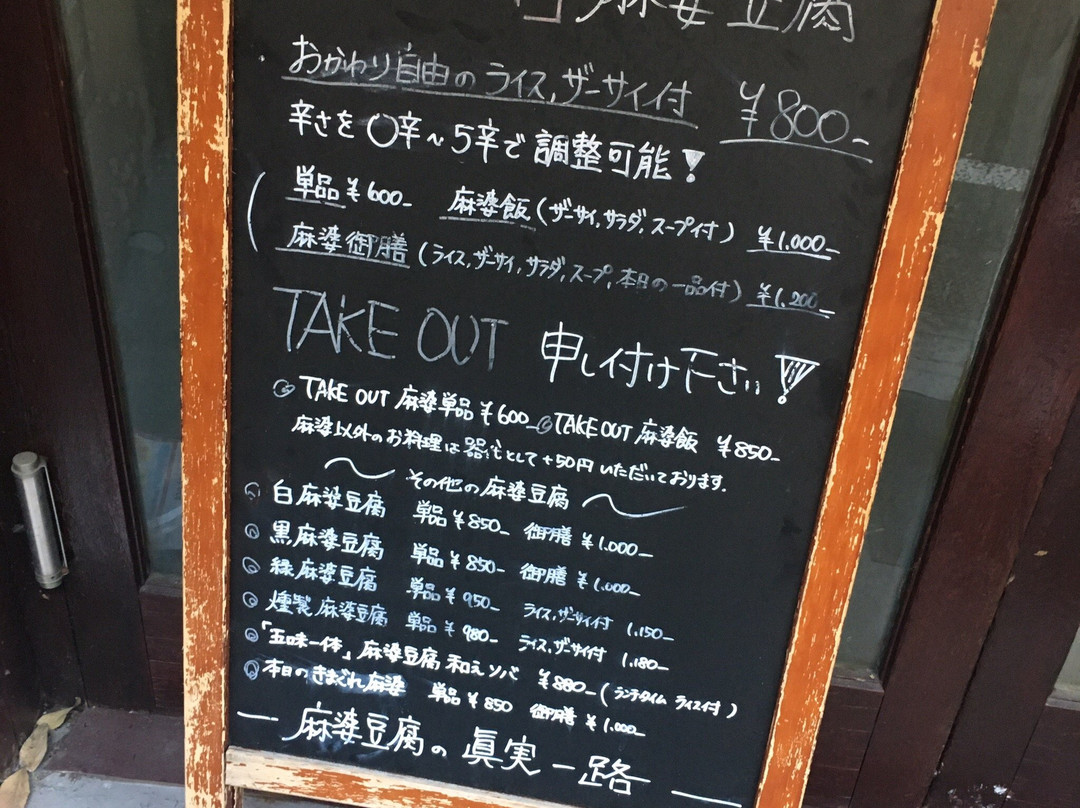 麻婆豆腐
おかわり自由のライス,ザーサイ付 ¥800-
辛さを〇辛~5辛で調整可能!
単品¥600- 麻婆飯(ザーサイ,サラダ,スープ付) ¥1.000-
麻婆御膳(ライス,ザーサイ,サラダ,スープ,本日の一品付) ¥1.200-
TAKE OUT 申し付け下さい!
TAKE OUT 麻婆単品¥600- TAKE OUT 麻婆飯 ¥850-
麻婆以外のお料理は器代として+50円いただいております.
その他の麻婆豆腐
白麻婆豆腐 単品¥850- 御膳¥1.000-
黒麻婆豆腐 単品¥850- 御膳¥1.000-
緑麻婆豆腐 単品¥950- ライス,ザーサイ付 1.150-
燻製麻婆豆腐 単品¥980- ライス,ザーサイ付 1.180-
「五味一体」麻婆豆腐和えソバ ¥880-(ランチタイムライス付)
本日のきまぐれ麻婆 単品¥850 御膳¥1.000-
麻婆豆腐の眞実一路